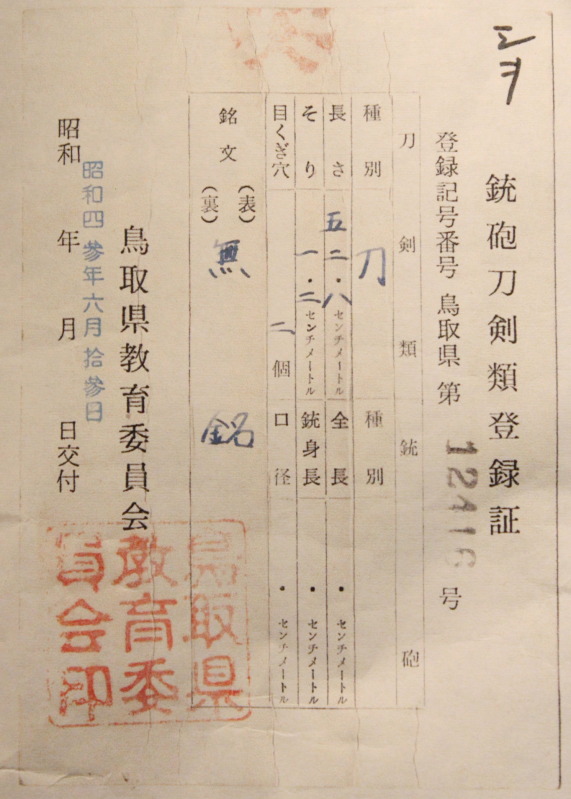 銃砲刀剣類登録証
登録記号番号 鳥取県 第 12416 号
刀剣類 銃砲
種別 刀 種別
長さ 五二・八センチメートル 全長 ・ センチメートル
そり 一・二センチメートル 銃身長 ・ センチメートル
目くぎ穴 二個 口径 ・ センチメートル
銘文 (表) 無銘
(裏)
鳥取県教育委員会
昭和 年 月 日交付
昭和四参年六月拾参日
鳥取県
教育委
員会印